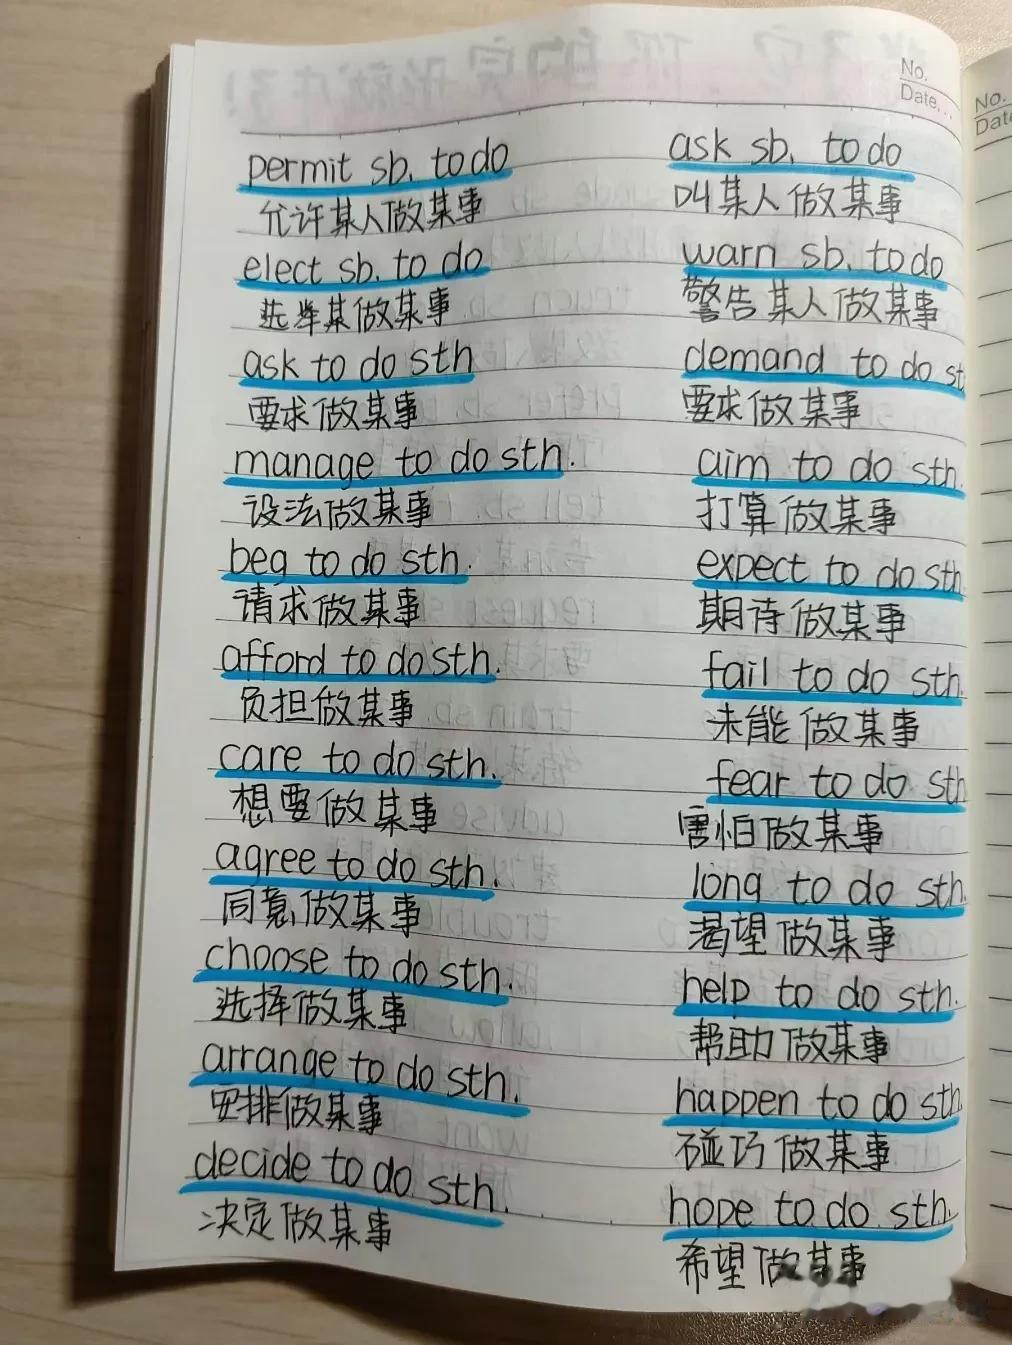 No.
Date
No.
permit sb. to do
允许某人做某事
elect sb. to do
选举某做某事
ask to do sth
要求做某事
manage to do sth.
设法做某事
beg to do sth.
请求做某事
afford to do sth.
负担做某事
care to do sth.
想要做某事
agree to do sth.
同意做某事
choose to do sth.
选择做某事
arrange to do sth.
安排做某事
decide to do sth.
决定做某事
ask sb. to do
叫某人做某事
warn sb. to do
警告某人做某事
demand to do st
要求做某事
aim to do sth.
打算做某事
expect to do sth
期待做某事
fail to do sth.
未能做某事
fear to do sth
害怕做某事
long to do sth.
渴望做某事
help to do sth.
帮助做某事
happen to do sth
碰巧做某事
hope to do sth.
希望做某事